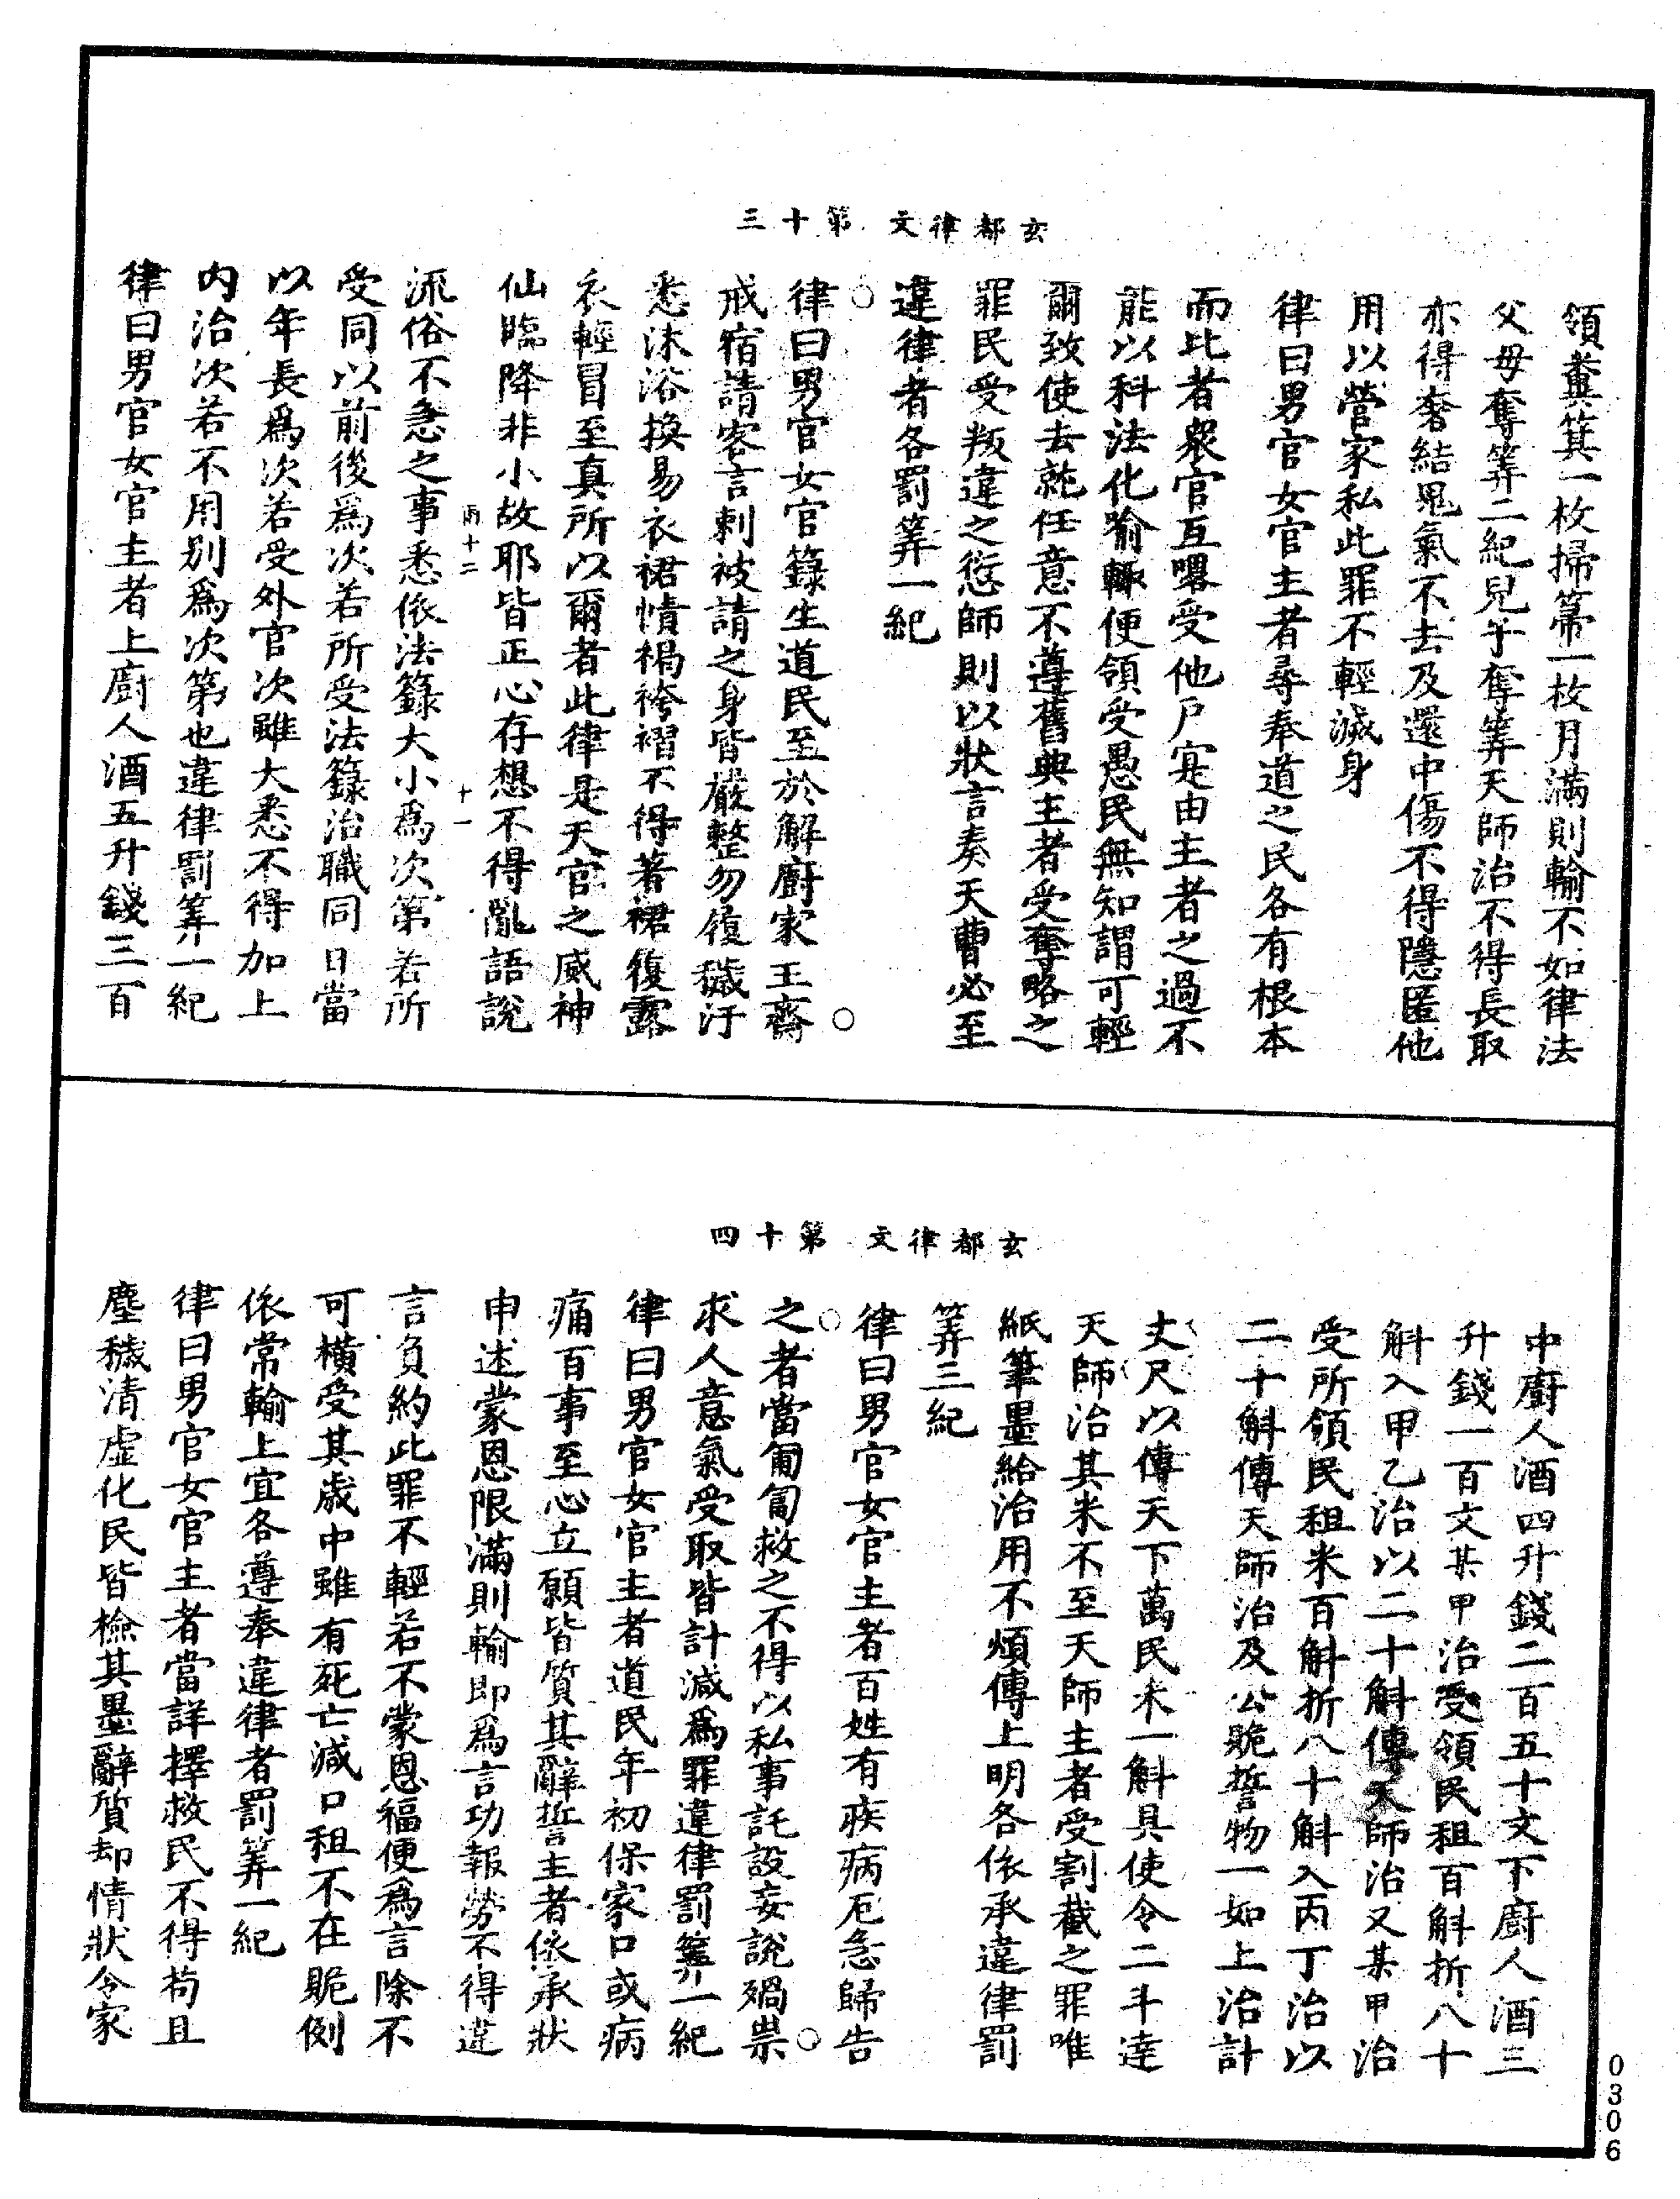 玄都律文　第十三
領糞箕一枚掃箒一枚月滿則輸不如律法
父母奪筭二紀兒子奪筭天師治不得長取
亦得奢結鬼氣不去及還中傷不得隱匿他
用以營家私此罪不輕滅身
律曰男官女官主者尋奉道之民各有根本
而比者衆官互略受他戶寔由主者之過不
能以科法化喻輙便領受愚民無知謂可輕
爾致使去就任意不遵舊典主者受奪略之
罪民受叛違之愆師則以狀言奏天曹必至
違律者各罰筭一紀
律曰男官女官籙生道民至於解廚家王齋
戒宿請客言剌被請之身皆嚴整勿履穢汙
悉沐浴換易衣裙幘褐袴褶不得著裙復露
衣輕冒至真所以爾者此律是天官之威神
仙臨降非小故耶皆正心存想不得亂語說
雨十二　十一
流俗不急之事悉依法籙大小爲次第若所
受同以前後爲次若所受法籙治職同日當
以年長爲次若受外官次雖大悉不得加上
内治次若不用別爲次第也違律罰筭一紀
律曰男官女官主者上廚人酒五升錢三百
玄都律文　第十四
中廚人酒四升錢二百五十文下廚人酒三
升錢一百文某甲治受領民租百斛折八十
斛入甲乙治以二十斛傳天師治又某甲治
受所領民租米百斛折八十斛入丙丁治以
二十斛傳天師治及公賧誓物一如上治計
丈尺以傳天下萬民米一斛具使令二斗達
天師治其米不至天師主者受割截之罪唯
紙筆墨給治用不煩傳上明各依承違律罰
筭三紀
律曰男官女官主者百姓有疾病厄急歸告
之者當匍匐救之不得以私事託設妄說禍祟
求人意氣受取皆計減爲罪違律罰筭一紀
律曰男官女官主者道民年初保家口或病
痛百事至心立願皆質其辭誓主者依承狀
申述蒙恩限滿則輸即爲言功報勞不得違
言負約此罪不輕若不蒙恩福便爲言除不
可橫受其歲中雖有死亡減口租不在賧例
依常輸上宜各遵奉違律者罰筭一紀
律曰男官女官主者當詳擇救民不得苟且
塵穢清虛化民皆檢其墨辭質却情狀令家
0306